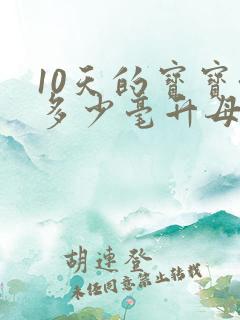 10天的宝宝
多少毫升母
胡連登
未经同意禁止转载